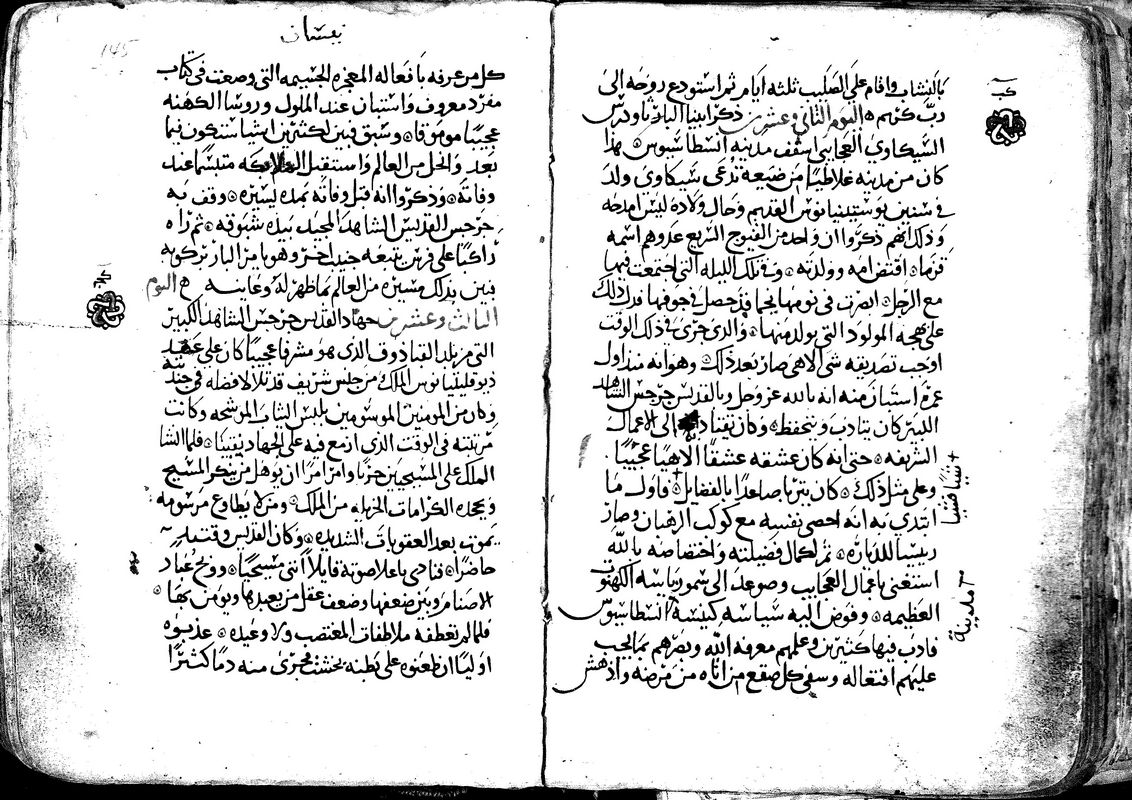 بالنشاب واقام على الصليب ثلثه ايام ثم استودع روحه الى
رب كرهم ۞ اليوم الثاني وعشرين ذكر ابينا البار تاودرس
السيكاوي العجايبي اسقف مدينه انسطاسيوس ۞ هذا
كان من مدينه غلاطيا من ضيعه تدعى سيكاوي ولد
في سنين يوستينيانوس القديم وحال ولاده ليس امدحه
وذلك انهم ذكروا ان واحد من الفيوج السريع عدوهم اسمه
قزما ۞ اقتض امه وولدته ۞ وفي تلك الليله التي اجتمعت فيها
مع الرجل ۞ ابصرت في نومها نجما قد حصل في جوفها فدل ذلك
على بهجه المولود التي يولد منها ۞ والذي جرى في ذلك الوقت
اوجب تصديقه شي الاهي صار بعد ذلك ۞ وهو انه منذ اول
عمره استبان منه انه بالله عز وجل وبالقديس جرجس الشاهد
الكبير كان يتادب ويتحفظ ۞ وكان يقتاد الى الاعمال
الشريفه ۞ حتى انه كان عشقه عشقا الاهيا عجيبا
وعلى مثل ذلك ۞ كان يتربا صاعدا بالفضايل ۞ فاول ما
شيا فشيا
ابتدى به انه احصى نفسه مع كوكب الرهبان وصار
رييسا للدياره ۞ ثم لكمال فضيلته واختصاصه بالله
استغنى باعمال العجايب وصوعد الى سمو رياسه الكهنوت
العظيمه ۞ وفوض اليه سياسه كنيسة انسطاسيوس
مدينة
فادب فيها كثيرين وعلمهم معرفه الله وبصرهم بما يجب
عليهم افتعاله وشفى كل صقع من اتاه من مرضه واذهش
كب
نيسان
145
كل من عرفه بافعاله المعجزه الجسيمه التي وضعت في كتاب
مفرد معروف واستبان عند الملوك وروسا الكهنه
عجيبا موموقا ۞ وسبق فبين لكثيرين اشيا ستكون فيما
بعد وانحل من العالم واستقبل الملايكه متبسما عند
وفاته ۞ وذكروا انه قبل وفاته بمده يسيره ۞ وقف به
جرجس القديس الشاهد المجيد بيده شبوقه ۞ ثم راه
راكبا على فرس يتبعه جنيب اخر وهو يامر البار بركوبه
فبين بذلك مسيره من العالم بما ظهر له وعاينه اليوم
الثالث وعشرين جهاد القديس جرجس الشاهد الكبير
التي من بلد القباذوق الذي هو مشرفا عجيبا كان على عهد
ديوقليتيانوس الملك من جنس شريف قد تلالا فضله في جنديته
وكان من المومنين الموسومين بلبس الثياب الموشحه وكانت
مرتبته في الوقت الذي ازمع فيه على الجهاد يقينا ۞ فلما انشا
الملك على المسيحيين حربا وامر امرا ان يوهل من ينكر المسيح
ويجحده الكرامات الجزيله من الملك ۞ ومن لا يطاوع مرسومه
يموت بعد العقوبات الشديده ۞ وكان القديس وقتيد
حاضرا ۞ فنادى باعلا صوته قايلا انني مسيحيا ۞ ووبخ عباد
الاصنام وبين ضعفها وضعف عقل من يعبدها ويومن بها ۞
فلما لم تعطفه ملاطفات المغتصب ولا وعيده ۞ عذبوه
اوليا ان طعنوه على بطنه بخشت فجرى منه دما كثيرا
كج